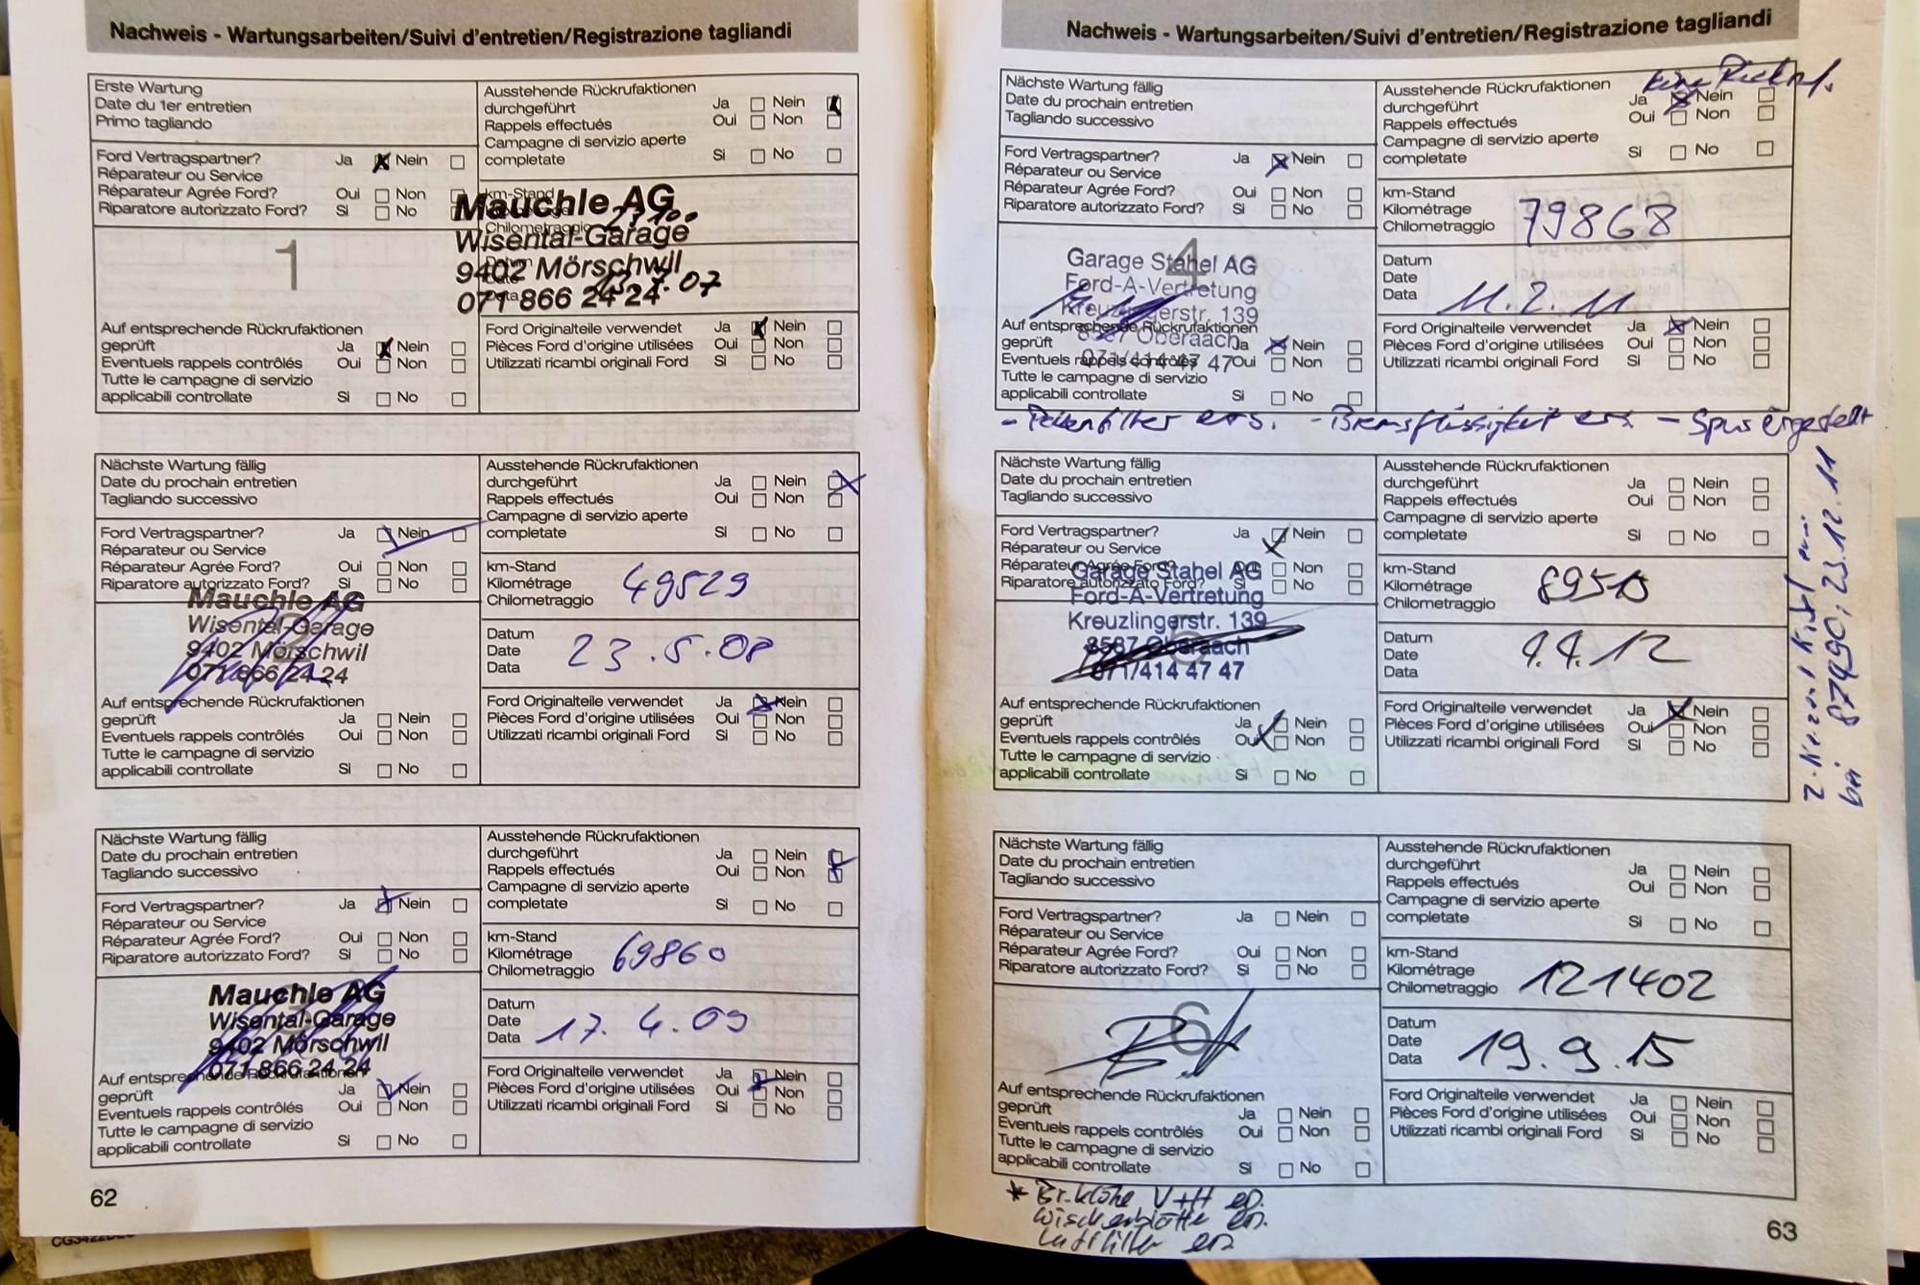 Nachweis - Wartungsarbeiten/Suivi d'entretien/Registrazione tagliandi
Erste Wartung
Date du 1er entretien
Primo tagliando
Ausstehende Rückrufaktionen
durchgeführt Ja Nein
Rappels effectués Oui Non
Campagne di servizio aperte
completate Si No
Ford Vertragspartner? Ja Nein
Réparateur ou Service
Réparateur Agrée Ford? Oui Non
Riparatore autorizzato Ford? Si No
km-Stand
Chilometraggio
Mauchle AG
Wisental-Garage
9402 Mörschwil
071 866 24 24
1
Auf entsprechende Rückrufaktionen
geprüft Ja Nein
Eventuels rappels contrôlés Oui Non
Tutte le campagne di servizio
applicabili controllate Si No
Ford Originalteile verwendet Ja Nein
Pièces Ford d'origine utilisées Oui Non
Utilizzati ricambi originali Ford Si No
Nächste Wartung fällig
Date du prochain entretien
Tagliando successivo
Ausstehende Rückrufaktionen
durchgeführt Ja Nein
Rappels effectués Oui Non
Campagne di servizio aperte
completate Si No
Ford Vertragspartner? Ja Nein
Réparateur ou Service
Réparateur Agrée Ford? Oui Non
Riparatore autorizzato Ford? Si No
km-Stand
Kilométrage 49529
Chilometraggio
Mauchle AG
Wisental-Garage
9402 Mörschwil
071 866 24 24
Datum
Date 23.5.08
Data
Auf entsprechende Rückrufaktionen
geprüft Ja Nein
Eventuels rappels contrôlés Oui Non
Tutte le campagne di servizio
applicabili controllate Si No
Ford Originalteile verwendet Ja Nein
Pièces Ford d'origine utilisées Oui Non
Utilizzati ricambi originali Ford Si No
Nächste Wartung fällig
Date du prochain entretien
Tagliando successivo
Ausstehende Rückrufaktionen
durchgeführt Ja Nein
Rappels effectués Oui Non
Campagne di servizio aperte
completate Si No
Ford Vertragspartner? Ja Nein
Réparateur ou Service
Réparateur Agrée Ford? Oui Non
Riparatore autorizzato Ford? Si No
km-Stand
Kilométrage 69860
Chilometraggio
Mauchle AG
Wisental-Garage
9402 Mörschwil
071 866 24 24
Datum
Date 17.4.09
Data
Auf entsprechende Rückrufaktionen
geprüft Ja Nein
Eventuels rappels contrôlés Oui Non
Tutte le campagne di servizio
applicabili controllate Si No
Ford Originalteile verwendet Ja Nein
Pièces Ford d'origine utilisées Oui Non
Utilizzati ricambi originali Ford Si No
62
Nachweis - Wartungsarbeiten/Suivi d'entretien/Registrazione tagliandi
Nächste Wartung fällig
Date du prochain entretien
Tagliando successivo
keine
Ausstehende Rückrufaktionen
durchgeführt Ja Nein
Rappels effectués Oui Non
Campagne di servizio aperte
completate Si No
Ford Vertragspartner? Ja Nein
Réparateur ou Service
Réparateur Agrée Ford? Oui Non
Riparatore autorizzato Ford? Si No
km-Stand
Kilométrage 79868
Chilometraggio
4
Garage Stahel AG
Ford-A-Vertretung
Kreuzlingerstr. 139
8587 Oberaach
071/414 47 47
Datum
Date
Data 11.2.11
Auf entsprechende Rückrufaktionen
geprüft Ja Nein
Eventuels rappels contrôlés Oui Non
Tutte le campagne di servizio
applicabili controllate Si No
Ford Originalteile verwendet Ja Nein
Pièces Ford d'origine utilisées Oui Non
Utilizzati ricambi originali Ford Si No
- Pollenfilter ers. - Bremsflüssigkeit ers - Spur eingestellt
Nächste Wartung fällig
Date du prochain entretien
Tagliando successivo
Ausstehende Rückrufaktionen
durchgeführt Ja Nein
Rappels effectués Oui Non
Campagne di servizio aperte
completate Si No
Ford Vertragspartner? Ja Nein
Réparateur ou Service
Réparateur Agrée Ford? Oui Non
Riparatore autorizzato Ford? Si No
km-Stand
Kilométrage
Chilometraggio
Garage Stahel AG
Ford-A-Vertretung
Kreuzlingerstr. 139
8587 Oberaach
071/414 47 47
Datum
Date
Data
Auf entsprechende Rückrufaktionen
geprüft Ja Nein
Eventuels rappels contrôlés Oui Non
Tutte le campagne di servizio
applicabili controllate Si No
Ford Originalteile verwendet Ja Nein
Pièces Ford d'origine utilisées Oui Non
Utilizzati ricambi originali Ford Si No
bei 87490, 23.12.11
Nächste Wartung fällig
Date du prochain entretien
Tagliando successivo
Ausstehende Rückrufaktionen
durchgeführt Ja Nein
Rappels effectués Oui Non
Campagne di servizio aperte
completate Si No
Ford Vertragspartner? Ja Nein
Réparateur ou Service
Réparateur Agrée Ford? Oui Non
Riparatore autorizzato Ford? Si No
km-Stand
Kilométrage 121402
Chilometraggio
6
Datum
Date 19.9.15
Data
Auf entsprechende Rückrufaktionen
geprüft Ja Nein
Eventuels rappels contrôlés Oui Non
Tutte le campagne di servizio
applicabili controllate Si No
Ford Originalteile verwendet Ja Nein
Pièces Ford d'origine utilisées Oui Non
Utilizzati ricambi originali Ford Si No
* Br.klötze V+H er.
Wischerblätter er.
Luftfilter er
63